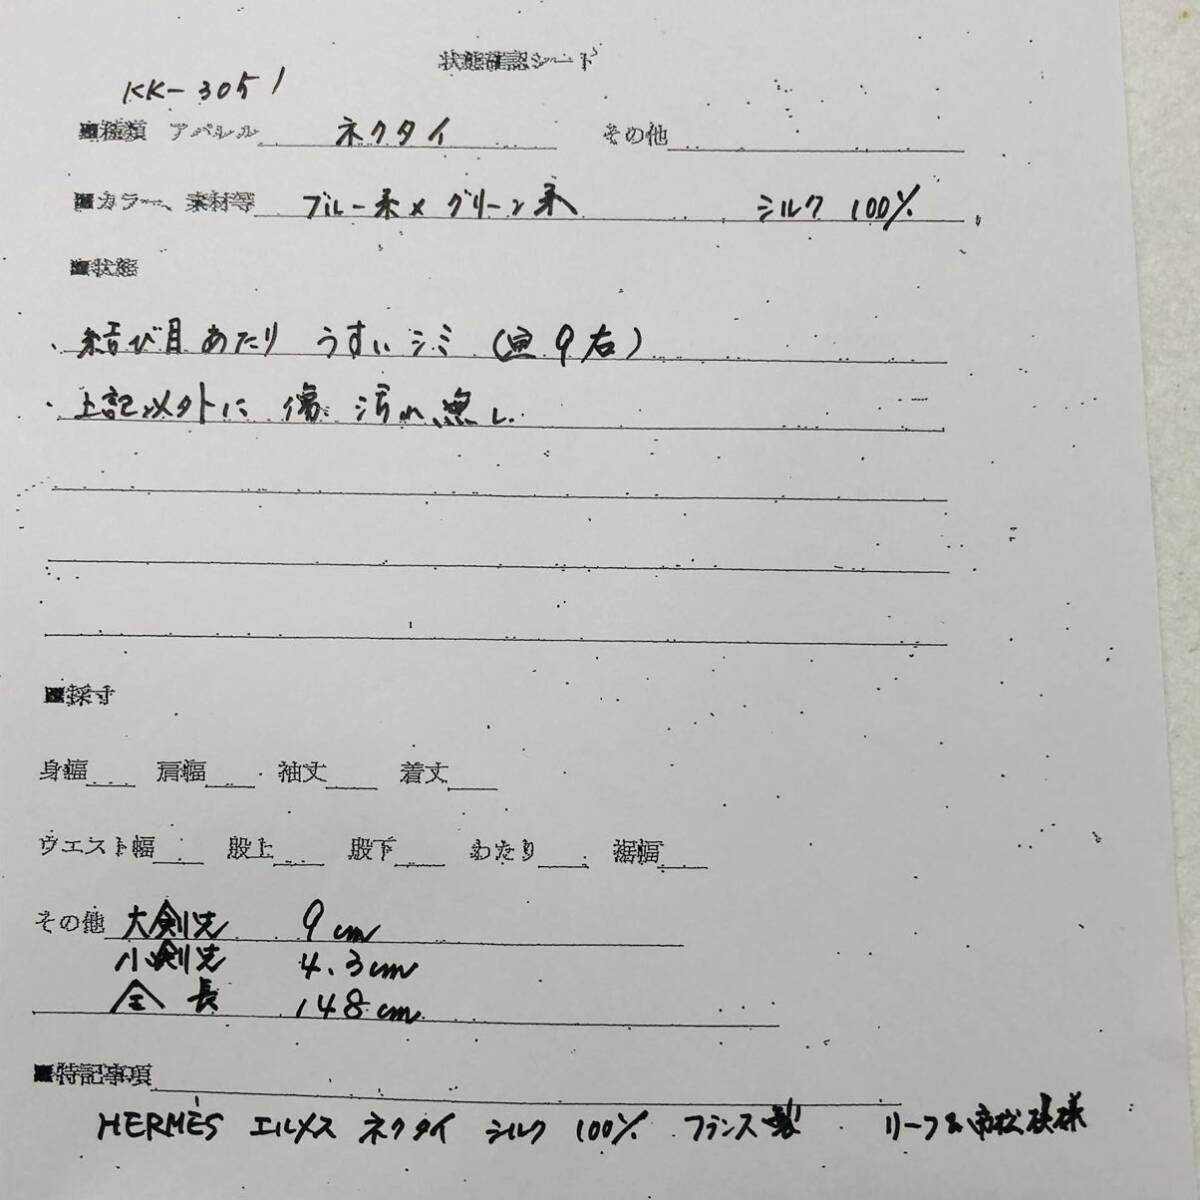 状態確認シート
KK-3051
■種類 アパレル ネクタイ その他
■カラー、素材等 ブルー系×グリーン系 シルク 100%
■状態
・結び目あたり うすいシミ (画9右)
・上記以外に 傷、汚れ、無し
■採寸
身幅 肩幅 袖丈 着丈
ウエスト幅 股上 股下 わたり 裾幅
その他 大剣先 9cm
小剣先 4.3cm
全長 148cm
■特記事項
HERMÈS エルメス ネクタイ シルク 100% フランス製 リーフ&市松模様